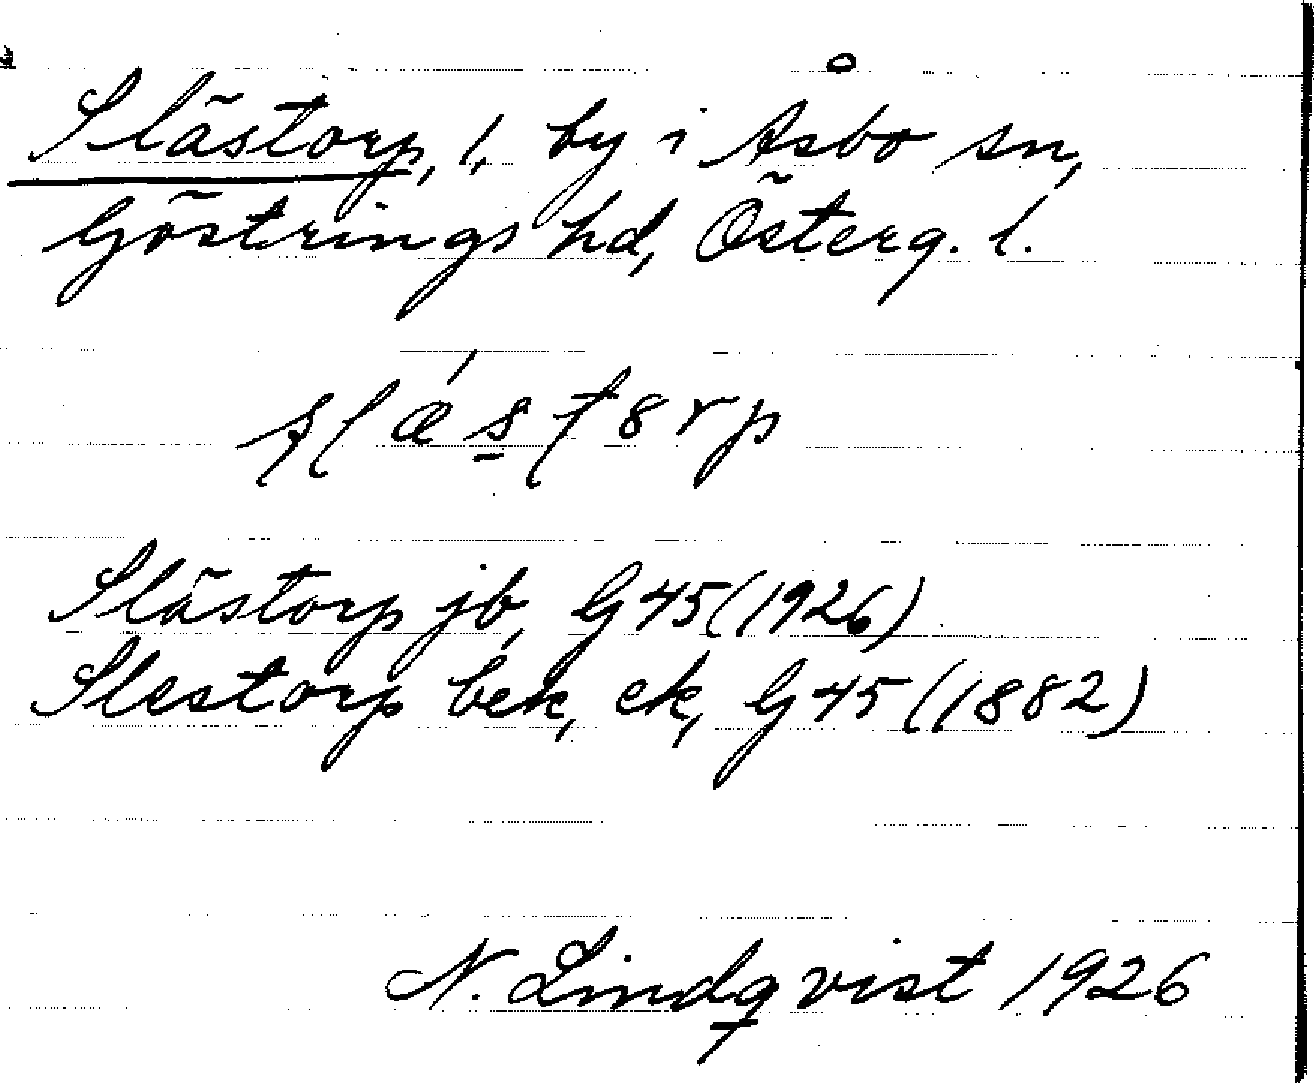 Slästorp, l, by i Åsbo sn,
Göstrings hd, Österg. l.
slǽst8rp
Slästorp jb, G 45 (1926)
Slestorp bek, ek, G 45 (1882)
N. Lindqvist 1926